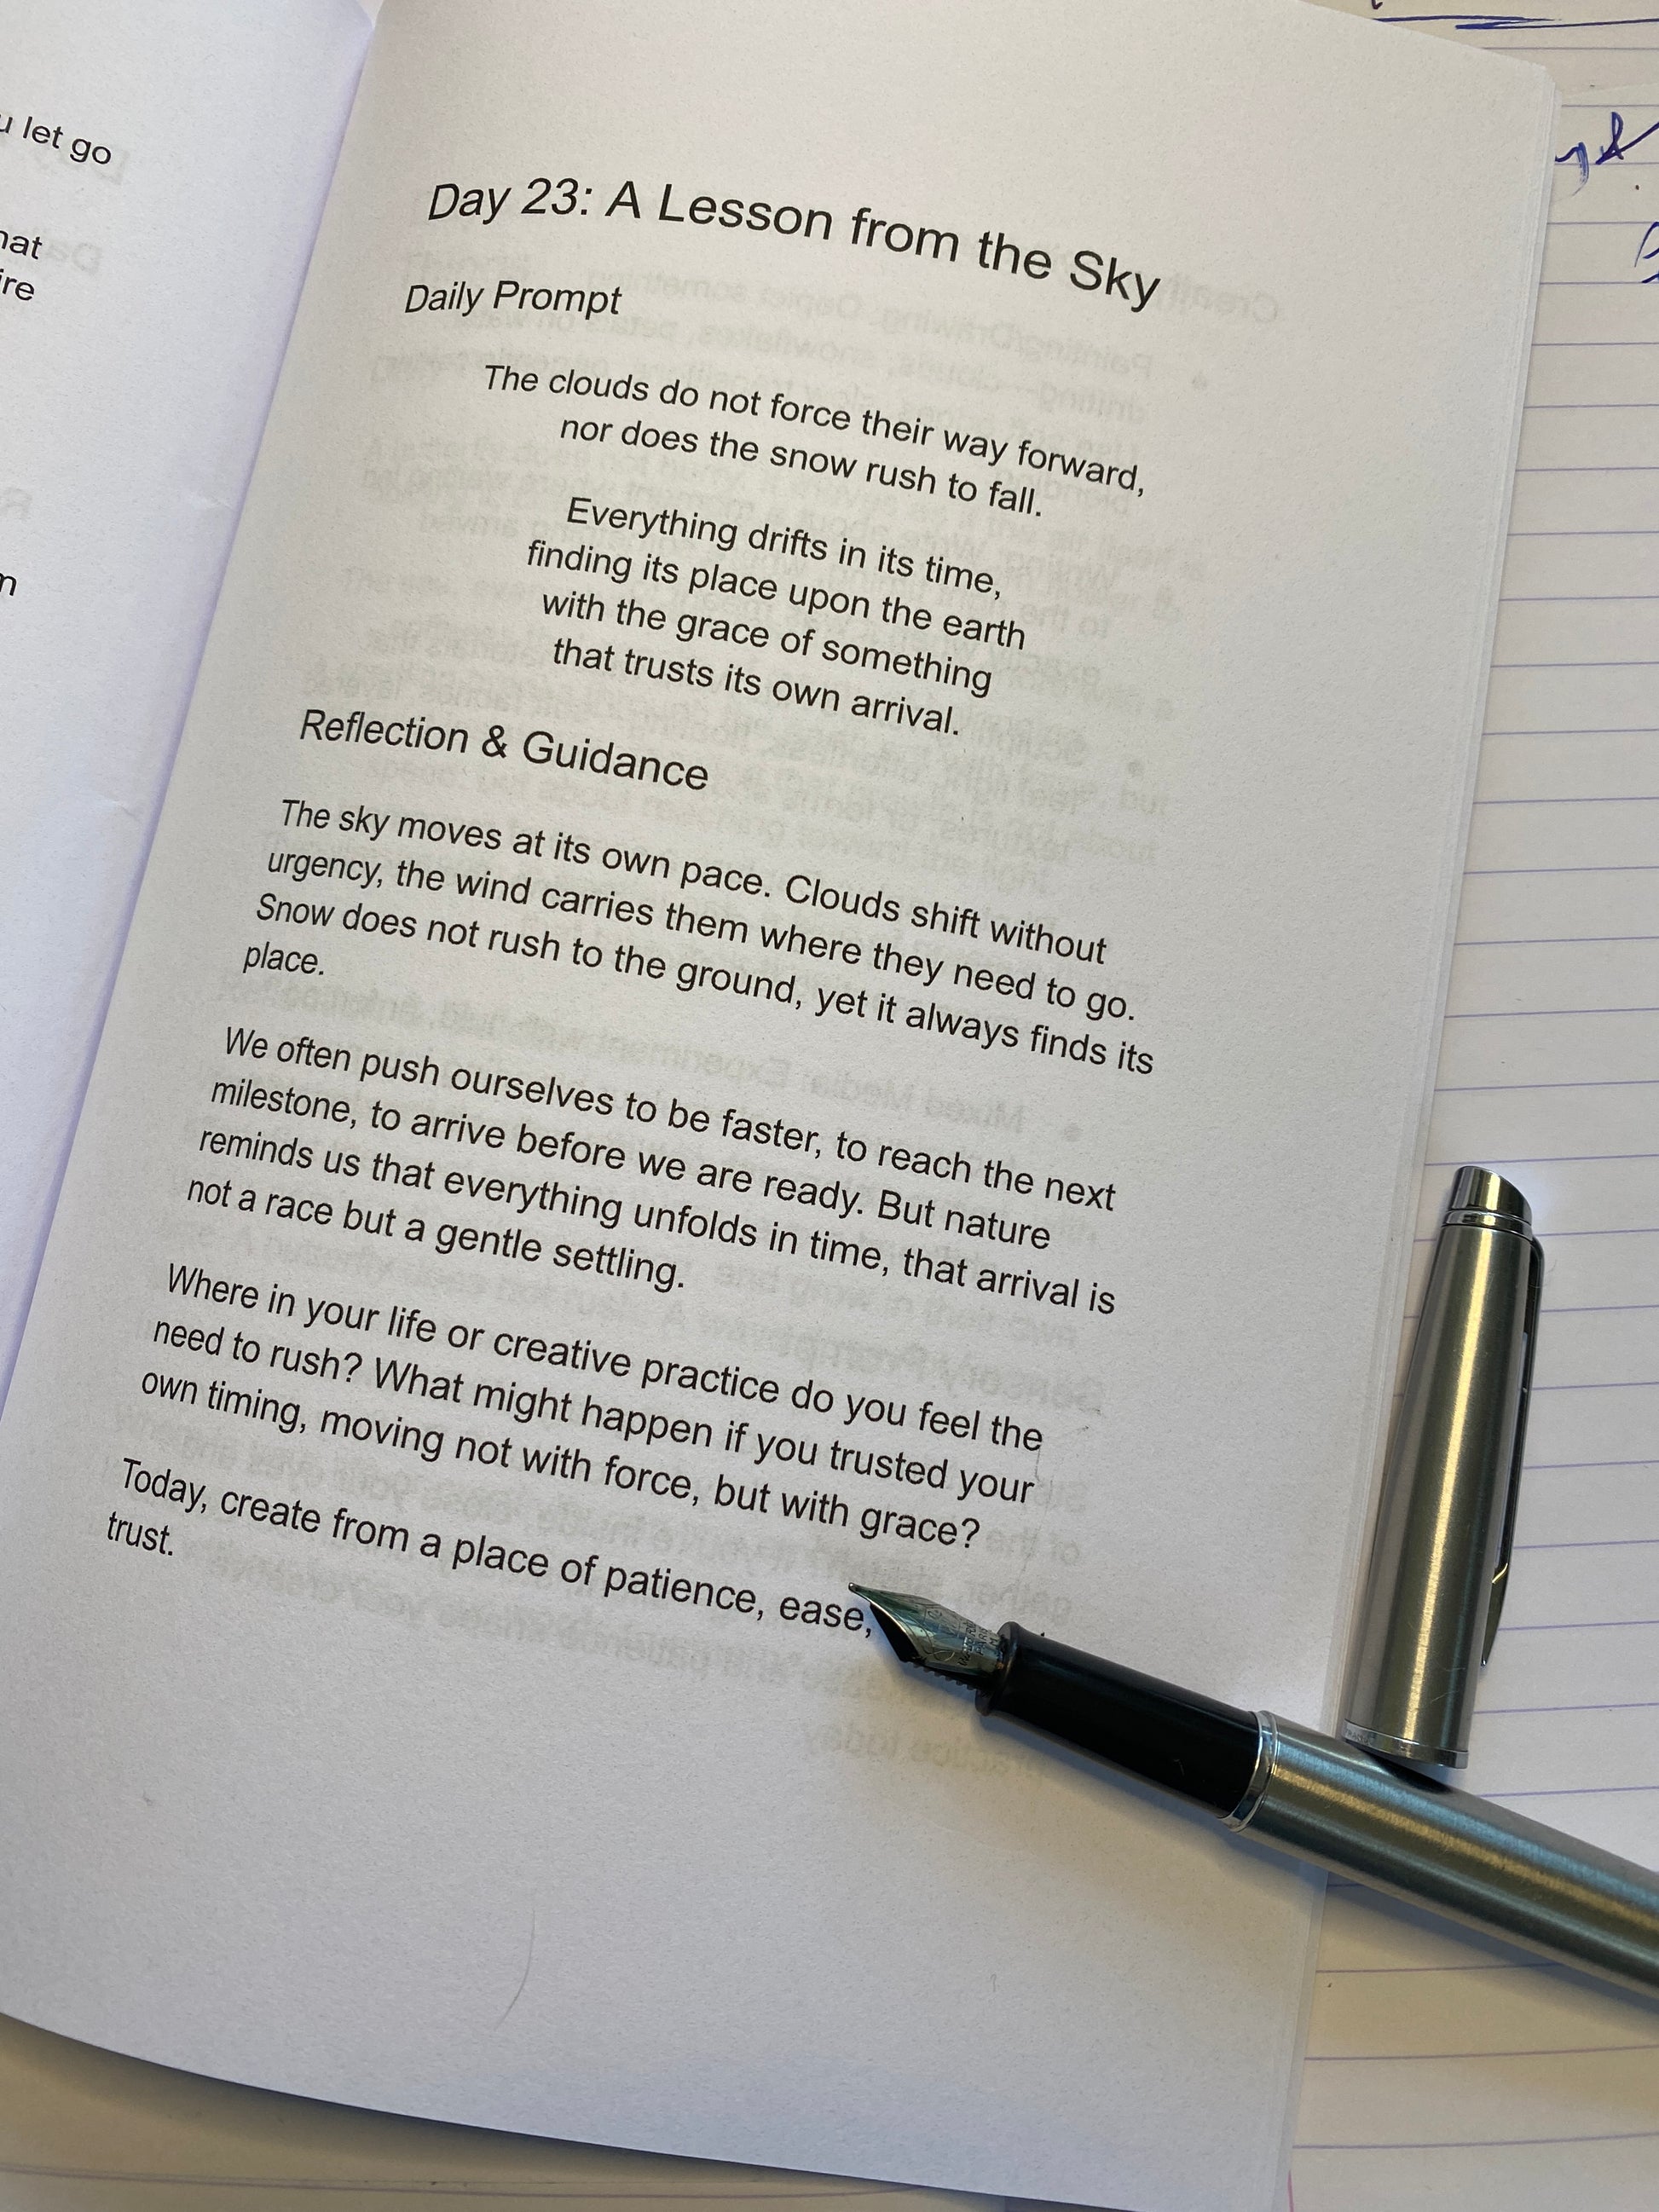 let go
Day 23: A Lesson from the Sky
Daily Prompt
The clouds do not force their way forward,
nor does the snow rush to fall.
Everything drifts in its time,
finding its place upon the earth
with the grace of something
that trusts its own arrival.
Reflection & Guidance
The sky moves at its own pace. Clouds shift without
urgency, the wind carries them where they need to go.
Snow does not rush to the ground, yet it always finds its
place.
We often push ourselves to be faster, to reach the next
milestone, to arrive before we are ready. But nature
reminds us that everything unfolds in time, that arrival is
not a race but a gentle settling.
Where in your life or creative practice do you feel the
need to rush? What might happen if you trusted your
own timing, moving not with force, but with grace?
Today, create from a place of patience, ease,
trust.